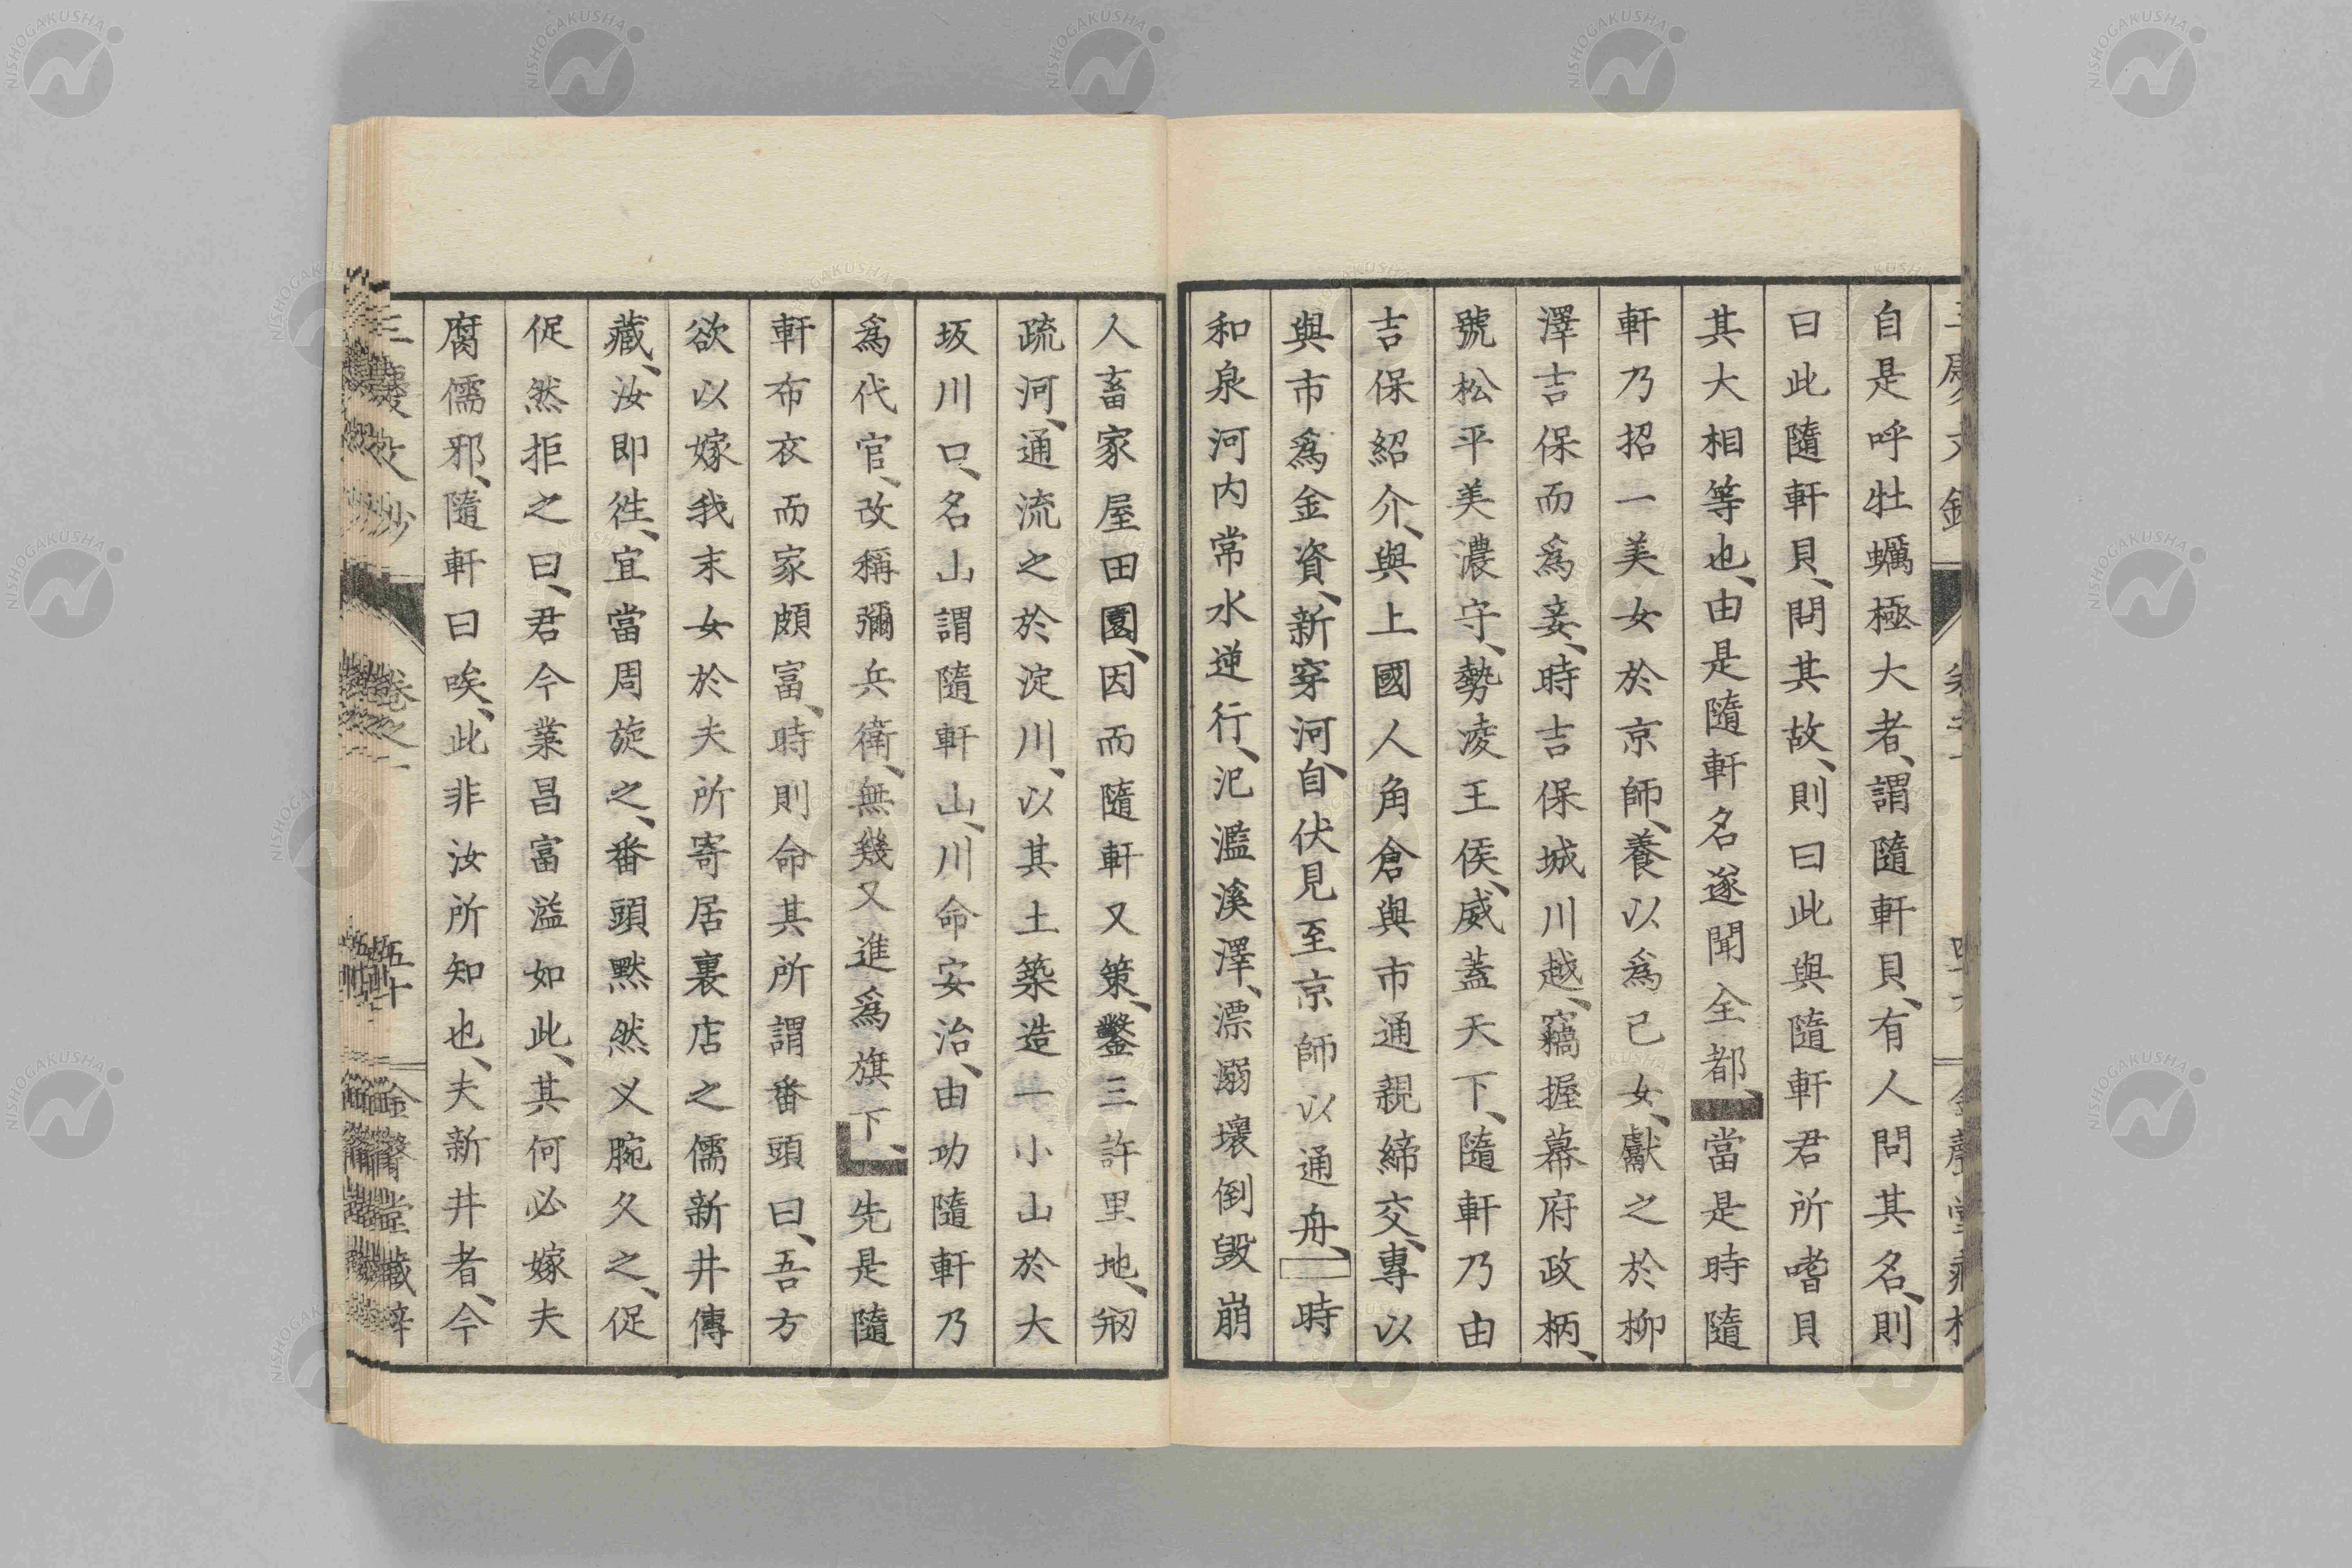 自是呼牡蠣極大者、謂隨軒貝、有人問其名、則
曰此隨軒貝、問其故、則曰此與隨軒君所嗜貝
其大相等也、由是隨軒名遂聞全都、當是時隨
軒乃招一美女於京師、養以爲己女、獻之於柳
澤吉保而爲妾、時吉保城川越、竊握幕府政柄、
號松平美濃守、勢凌王侯、威蓋天下、隨軒乃由
吉保紹介、與上國人角倉與市通親締交、專以
與市爲金資、新穿河、自伏見至京師以通舟、時
和泉河内常水逆行、汜濫溪澤、漂溺壞倒毀崩
人畜家屋田園、因而隨軒又策、鑿三許里地、剏
疏河、通流之於淀川、以其土築造一小山於大
坂川口、名山謂隨軒山、川命安治、由功隨軒乃
爲代官、改稱彌兵衛、無幾又進爲旗下、先是隨
軒布衣而家頗富、時則命其所謂番頭曰、吾方
欲以嫁我末女於夫所寄居裏店之儒新井傳
藏、汝即徃、宜當周旋之、番頭黙然乂腕久之、促
促然拒之曰、君今業昌富溢如此、其何必嫁夫
腐儒邪、隨軒曰唉、此非汝所知也、夫新井者、今
卷之一
五十
金聲堂藏梓
NISHOGAKUSHA